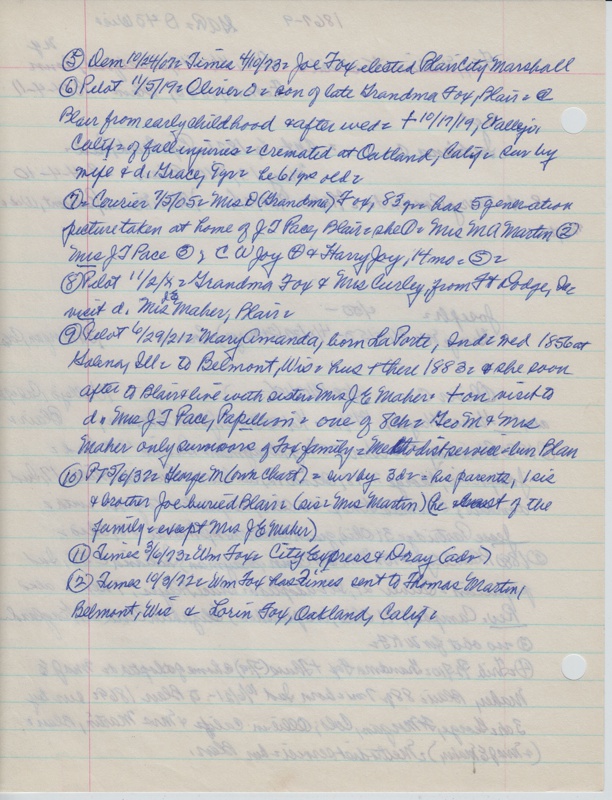 ⑤ Dem 10/24/07 = Times 4/10/73 = Joe Fox elected Blair City Marshall
⑥ Pilot 11/5/19 = Oliver O = son of late Grandma Fox, Blair = @
Blair from early childhood & after wed = † 10/17/19, Vallejo,
Calif = of fall injuries = cremated at Oakland, Calif = sur by
wife & d. Grace, = he 61 yrs old =
⑦ = Courier 7/5/05 = Mrs O (Grandma) Fox, 83 yr = has 5 generation
picture taken at home of J T Pace, Blair = she ① = Mrs M A Martin ②
Mrs J T Pace ③ ; C W Joy ④ & Harry Joy, 14 mo = ⑤ =
⑧ Pilot = Grandma Fox & Mrs Curley, from Ft Dodge,
visit d. Mrs JE Maher, Blair =
⑨ Pilot 6/29/21 = Mary Amanda, born La Porte, Ind = wed 1856 at
Galena, Ill = to Belmont, Wis = hus † there 1883 = & she soon
after to Blair & live with sister Mrs J E Maher = † on visit to
d. Mrs J T Pace, Papillion = one of 8 ch = Geo M & Mrs
Maher only survivors of Fox family = Methodist service = bur Blair
⑩ PT 5/6/32 = George M (own Chart) = sur by 3 d = his parents, 1 sis
& brother Joe buried Blair = (sis = Mrs Martin) (he last of the
family = except Mrs J E Maher)
⑪ Times 3/6/73 = Wm Fox = City Express & Dray (adv)
⑫ Times 10/3/72 = Wm Fox has Times sent to Thomas Martin,
Belmont, Wis & Lorin Fox, Oakland, Calif =